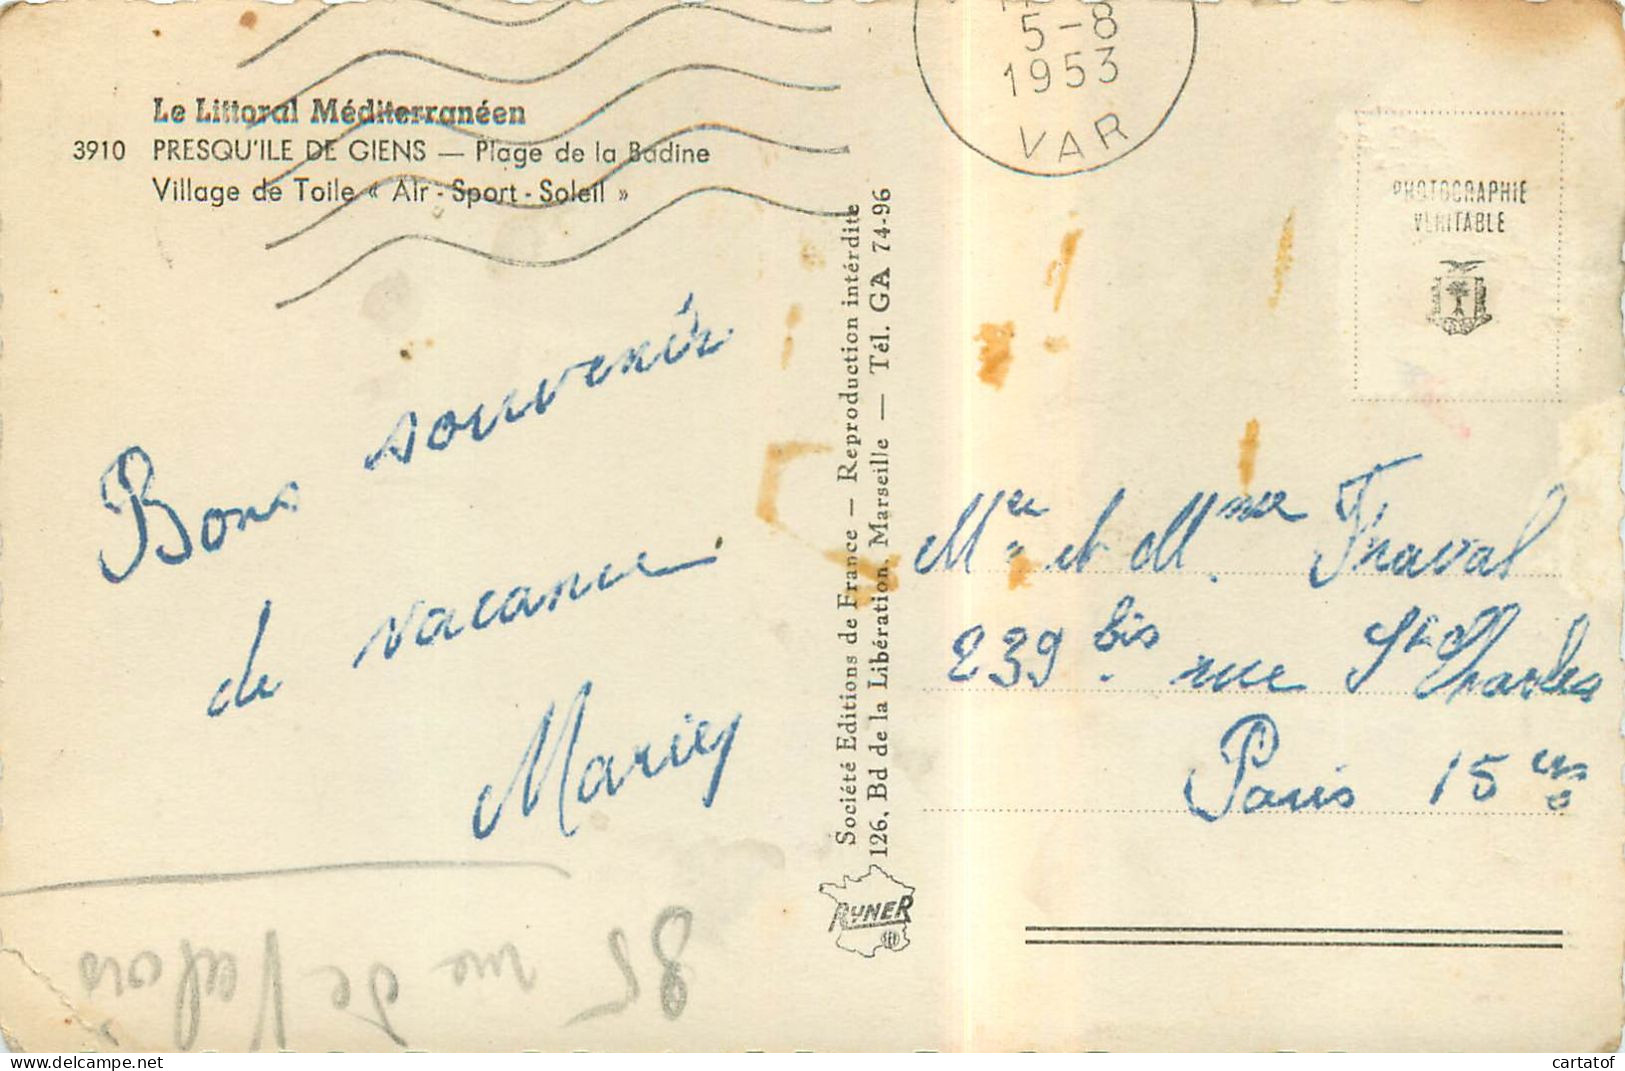 Le Littoral Méditerranéen
3910 PRESQU'ILE DE GIENS — Plage de la Badine
Village de Toile « Air - Sport - Soleil »
5-8
1953
VAR
PHOTOGRAPHIE
VERITABLE
Bons souvenir
de vacance
Mariey
Société Editions de France — Reproduction intérdite
126, Bd de la Libération, Marseille — Tél. GA 74-96
RYNER
Mr et Mme Fraval
239 bis rue St Charles
Paris 15
85 rue de Valois
cartatof